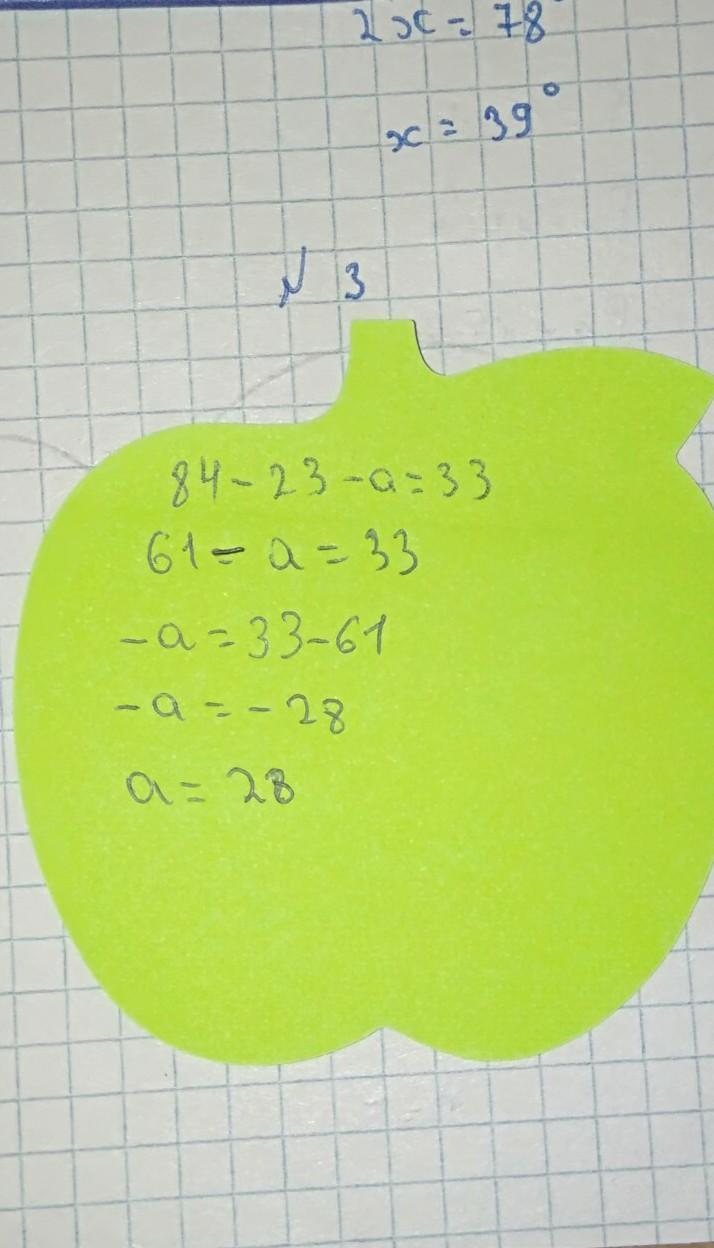 2x = 78°
x = 39°
№ 3
84 - 23 - a = 33
61 - a = 33
-a = 33 - 61
-a = - 28
a = 28